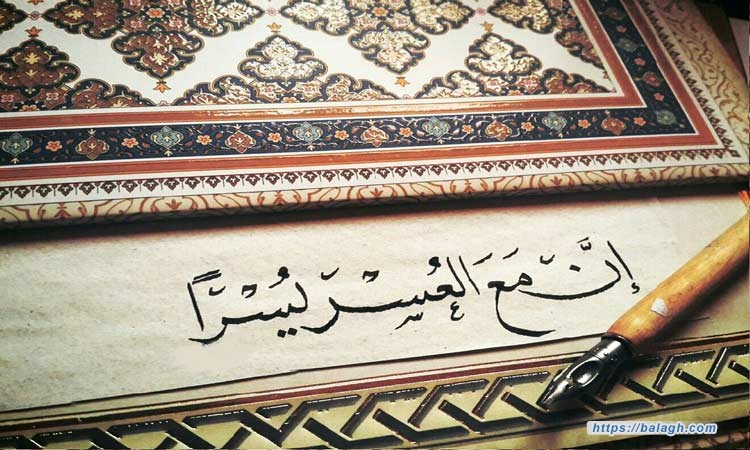 إِنَّ مَعَ الْعُسْرِ يُسْرًا
https://balagh.com